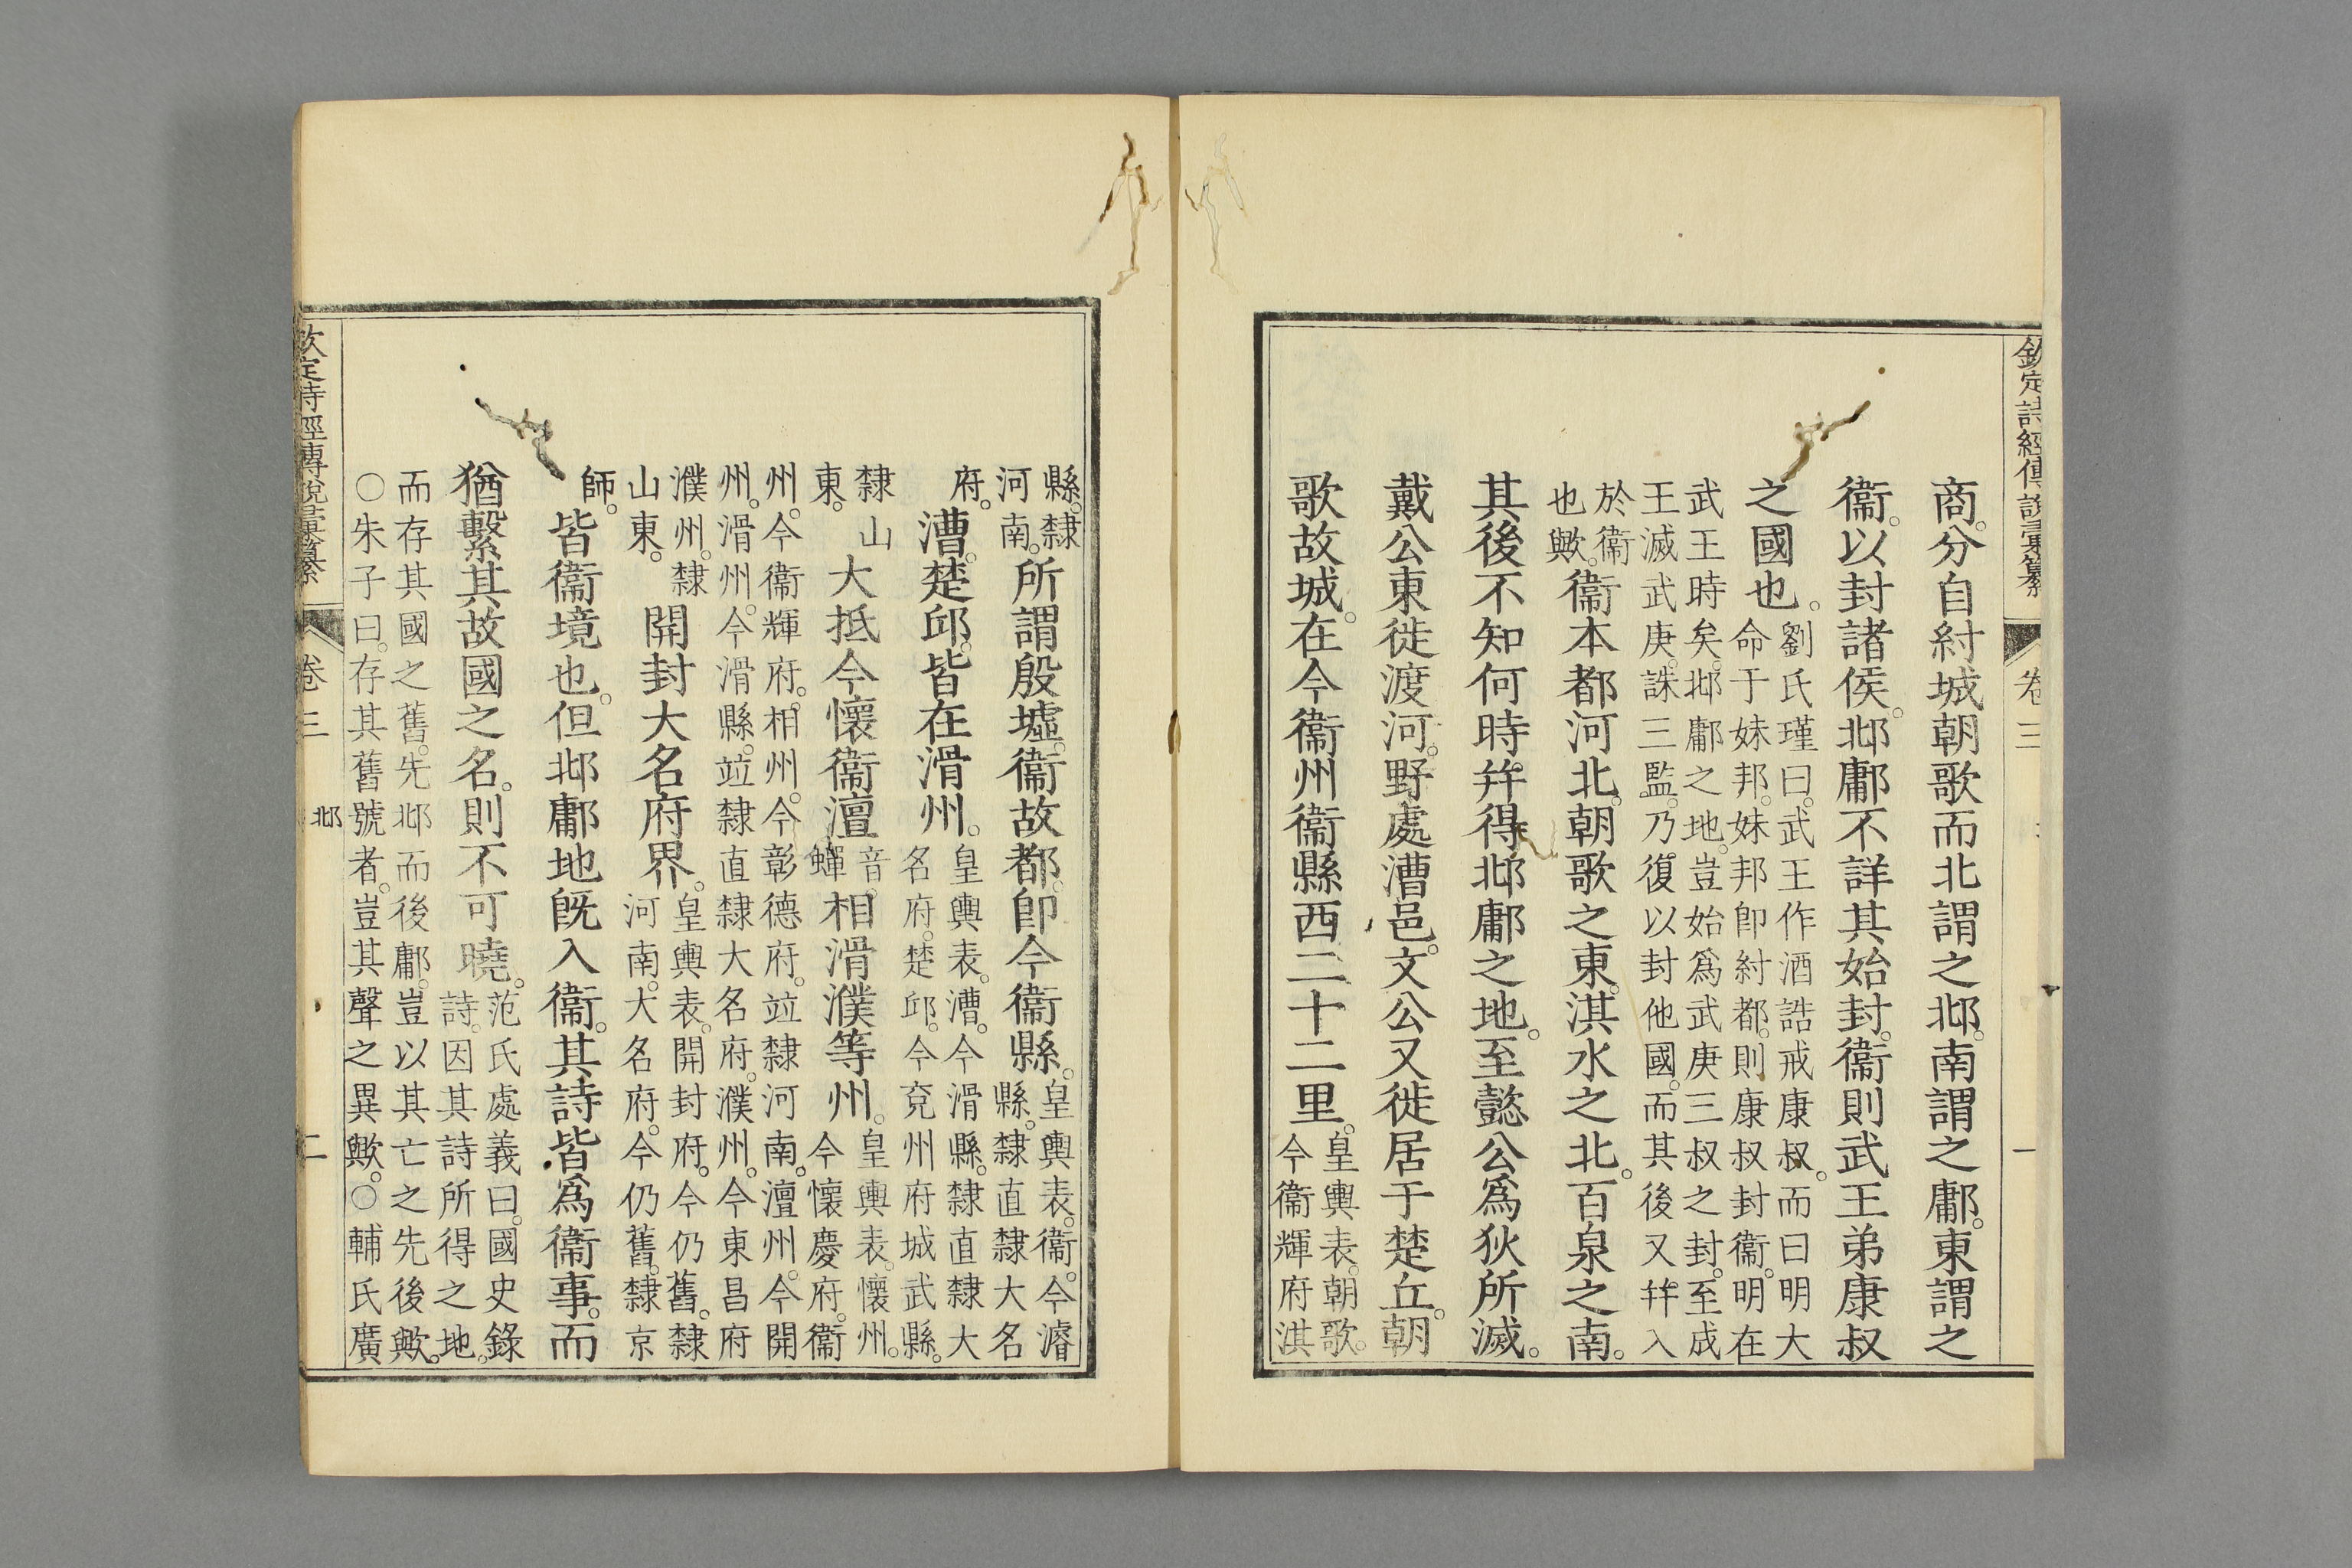 欽定詩經傳說彙纂 卷三 一
商。分自紂城朝歌而北謂之邶。南謂之鄘。東謂之
衞。以封諸侯。邶鄘不詳其始封。衞則武王弟康叔
之國也。
劉氏瑾曰。武王作酒誥戒康叔。而曰明大
命于妹邦。妹邦卽紂都。則康叔封衞。明在
武王時矣。邶鄘之地。豈始爲武庚三叔之封。至成
王滅武庚。誅三監。乃復以封他國。而其後又幷入
於衞
也歟。
衞本都河北。朝歌之東。淇水之北。百泉之南。
其後不知何時。幷得邶鄘之地。至懿公爲狄所滅。
戴公東徙渡河。野處漕邑。文公又徙居于楚丘。朝
歌故城。在今衞州衞縣西二十二里。
皇輿表。朝歌。
今衞輝府淇
縣。隸
河南。
所謂殷墟。衞故都。卽今衞縣。
皇輿表。衞。今濬
縣。隸直隸大名
府。
漕。楚邱。皆在滑州。
皇輿表。漕。今滑縣。隸直隸大
名府。楚邱。今兗州府城武縣。
隸山
東。
大抵今懷衞澶
音
蟬
相滑濮等州。
皇輿表。懷州。
今懷慶府。衞
州。今衞輝府。相州。今彰德府。竝隸河南。澶州。今開
州。滑州。今滑縣。竝隸直隸大名府。濮州。今東昌府
濮州。隸
山東。
開封大名府界。
皇輿表。開封府。今仍舊。隸
河南。大名府。今仍舊。隸京
師。
皆衞境也。但邶鄘地旣入衞。其詩皆爲衞事。而
猶繫其故國之名。則不可曉。
范氏處義曰。國史錄
詩。因其詩所得之地。
而存其國之舊。先邶而後鄘。豈以其亡之先後歟。
○朱子曰。存其舊號者。豈其聲之異歟。○輔氏廣
欽定詩經傳說彙纂 卷三 邶 二